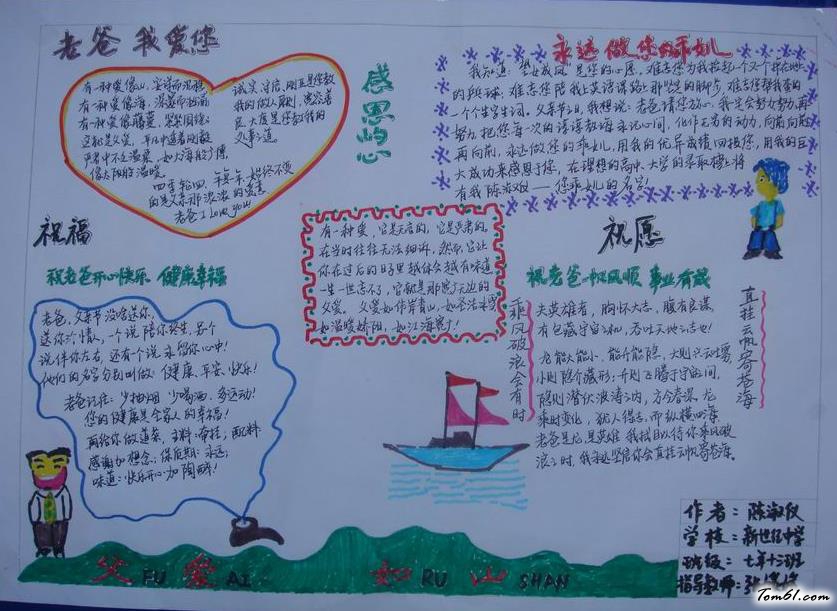 老爸 我爱您
有一种爱像山，
有一种爱像海，
有一种爱像藤蔓，
这就是父爱，平凡中透着刚毅
严肃中不乏温柔。如大海般宽博，
像太阳般温暖。
四季轮回，年复一年，始终不变
的是父亲那深深的爱意
老爸 I love you!
诚实、守信、刚正是您教
我的做人原则，宽容善
良、大度是您教我的
处事之道
感恩的心
永远做您的乖女儿
我知道：望女成凤，是您的心愿，难忘您为我捡起一个又一个掉在地
的段球，难忘您陪我上英语课路上那坚定的脚步，难忘您帮我查的
一个个生字生词。父亲节之日，我想说：老爸请您放心，我定会努力努力再
努力，把您每一次的谆谆教诲永记心间，化作无穷的动力，向前向前
再向前，永远做您的乖女儿，用我的优异成绩回报您，用我的巨
大成功来感恩于您，在理想的高中、大学的录取榜上将
有我陈淑仪——您乖女儿的名字！
祝福
祝老爸开心快乐 健康幸福
老爸，父亲节没啥送你，
送你三个情人，一个说陪你终生，另个
说伴你左右，还有个说永留你心中！
他们的名字分别叫做：健康、平安、快乐！
老爸记住：少抽烟 少喝酒、多运动！
您的健康是全家人的幸福！
再给你做道菜，主料：牵挂，配料：
感谢加想念；保质期：永远；
味道：快乐开心加陶醉！
有一种爱，它是无言的，它是严肃的，
在当时往往无法细诉，然而，它让
你在过后的日子里越体会越有味道，
一生一世忘不了，它就是那宽广无边的
父爱。父爱如伟岸青山，
如温暖娇阳，如江海宽广！
祝愿
祝老爸一帆风顺 事业有成
乘风破浪会有时
夫英雄者，胸怀大志，腹有良谋，
有包藏宇宙之机，吞吐天地之志也！
龙能大能小，能升能隐，大则兴云吐雾，
小则隐介藏形；升则飞腾于宇宙间，
隐则潜伏于波涛之内，方今春深，龙
乘时变化，犹人得志，而纵横四海。
老爸是龙，是英雄，我拭目以待你乘风破
浪之时，我永远坚信你会直挂云帆寄苍海。
直挂云帆寄苍海
父FU 爱AI 如RU 山SHAN
作者：陈淑仪
学校：新世纪中学
班级：七年十三班
指导教师：张
Tom61.com